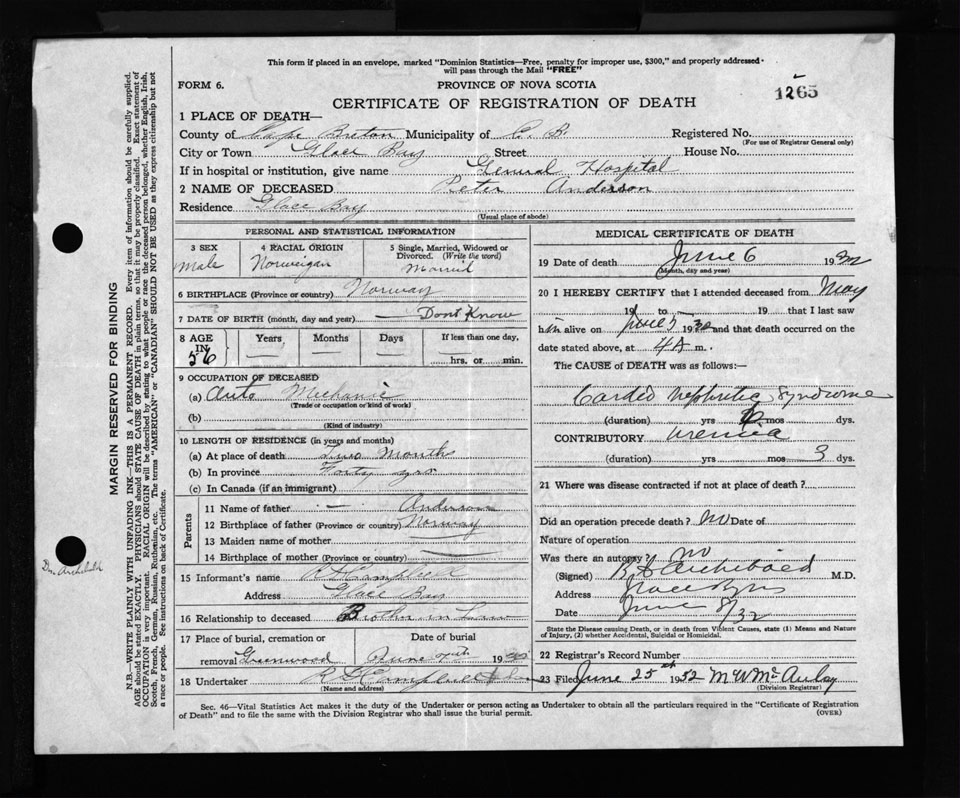 This form if placed in an envelope, marked "Dominion Statistics—Free, penalty for improper use, $300," and properly addressed
will pass through the Mail "FREE"
FORM 6. PROVINCE OF NOVA SCOTIA
1265
CERTIFICATE OF REGISTRATION OF DEATH
1 PLACE OF DEATH—
County of Cape Breton Municipality of C. B. Registered No.
(For use of Registrar General only)
City or Town Glace Bay Street House No.
If in hospital or institution, give name General Hospital
2 NAME OF DECEASED Peter Anderson
Residence Glace Bay
(Usual place of abode)
PERSONAL AND STATISTICAL INFORMATION
3 SEX 4 RACIAL ORIGIN 5 Single, Married, Widowed or
Divorced. (Write the word)
Male Norweigan Married
6 BIRTHPLACE (Province or country) Norway
7 DATE OF BIRTH (month, day and year) — Dont Know
8 AGE IN Years Months Days If less than one day,
56 hrs. or min.
9 OCCUPATION OF DECEASED
(a) Auto Mechanic
(Trade or occupation or kind of work)
(b)
(Kind of industry)
10 LENGTH OF RESIDENCE (in years and months)
(a) At place of death Two Months
(b) In province Forty yrs
(c) In Canada (if an immigrant)
Parents
11 Name of father — Anderson
12 Birthplace of father (Province or country) Norway
13 Maiden name of mother —
14 Birthplace of mother (Province or country) —
15 Informant's name Campbell
Address Glace Bay
16 Relationship to deceased Brother in Law
17 Place of burial, cremation or Date of burial
removal Greenwood June 7th 1932
18 Undertaker Campbell
(Name and address)
MEDICAL CERTIFICATE OF DEATH
19 Date of death June 6 1932
(Month, day and year)
20 I HEREBY CERTIFY that I attended deceased from May
19 to 19 that I last saw
him alive on 1932 and that death occurred on the
date stated above, at 4A m.
The CAUSE of DEATH was as follows:—
Cardio Nephritic Syndrome
(duration) yrs mos dys.
CONTRIBUTORY Uremia
(duration) yrs mos 3 dys.
21 Where was disease contracted if not at place of death?
Did an operation precede death? No Date of
Nature of operation
Was there an autopsy? no
(Signed) Archibald M.D.
Address Glace Bay NS
Date June 8/32
State the Disease causing Death, or in death from Violent Causes, state (1) Means and Nature
of Injury, (2) whether Accidental, Suicidal or Homicidal.
22 Registrar's Record Number
23 Filed June 25th 1932 M W McAulay
(Division Registrar)
Sec. 46—Vital Statistics Act makes it the duty of the Undertaker or person acting as Undertaker to obtain all the particulars required in the "Certificate of Registration
of Death" and to file the same with the Division Registrar who shall issue the burial permit. (OVER)
MARGIN RESERVED FOR BINDING
N.B.—WRITE PLAINLY WITH UNFADING INK—THIS IS A PERMANENT RECORD. Every item of information should be carefully supplied.
AGE should be stated EXACTLY. PHYSICIANS should STATE CAUSE OF DEATH in plain terms, so that it may be properly classified. Exact statement of
OCCUPATION is very important. RACIAL ORIGIN will be described by stating to what people or race the deceased person belonged, whether English, Irish,
Scotch, French, German, Russian, Ruthenian, etc. The terms "AMERICAN" or "CANADIAN" SHOULD NOT BE USED as they express citizenship but not
a race or people. See instructions on back of Certificate.
Dr. Archibald